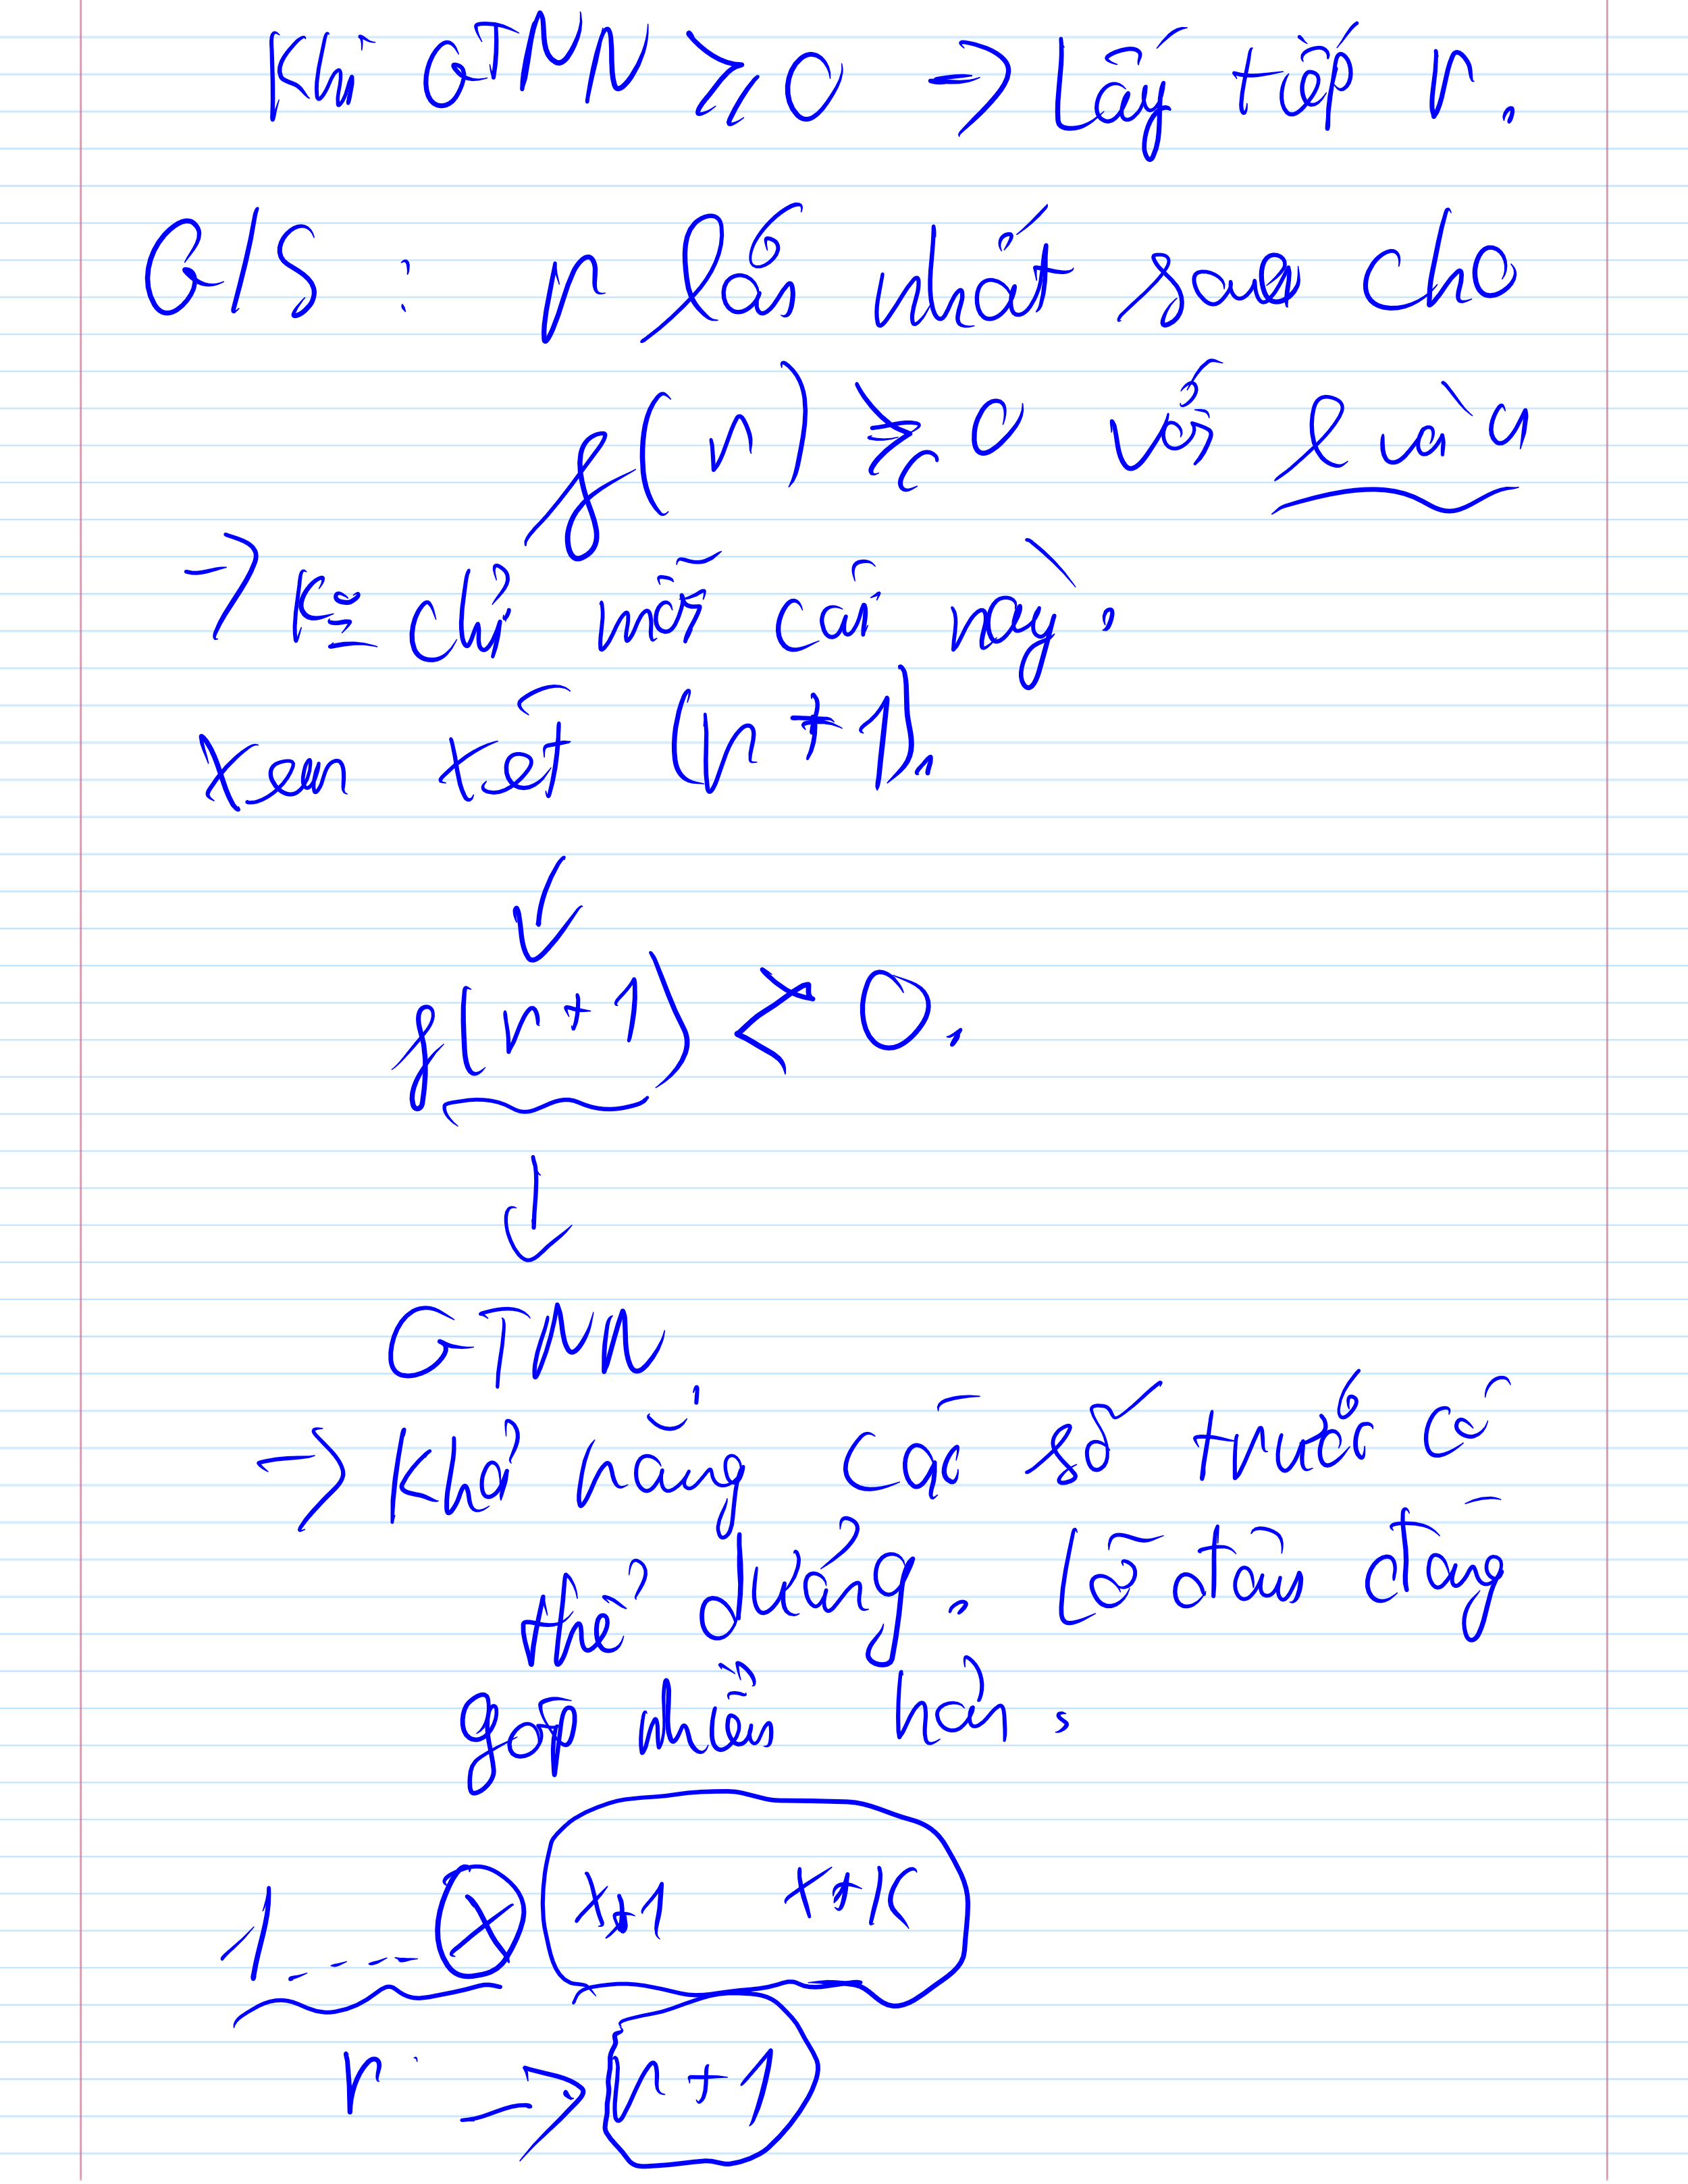 Khi GTNN ≥ 0 → Lấy tiếp n.
G/S : n lớn nhất sao cho
f(n) ≥ 0 với
→ chỉ mỗi cái này.
xem xét (n + 1),
f(n+1) < 0.
GTNN
→ Khả năng các số trước có
thể dương. Lỡ đâu đóng
góp nhiều hơn.
1 ---- x x+1 x+k
n → n+1